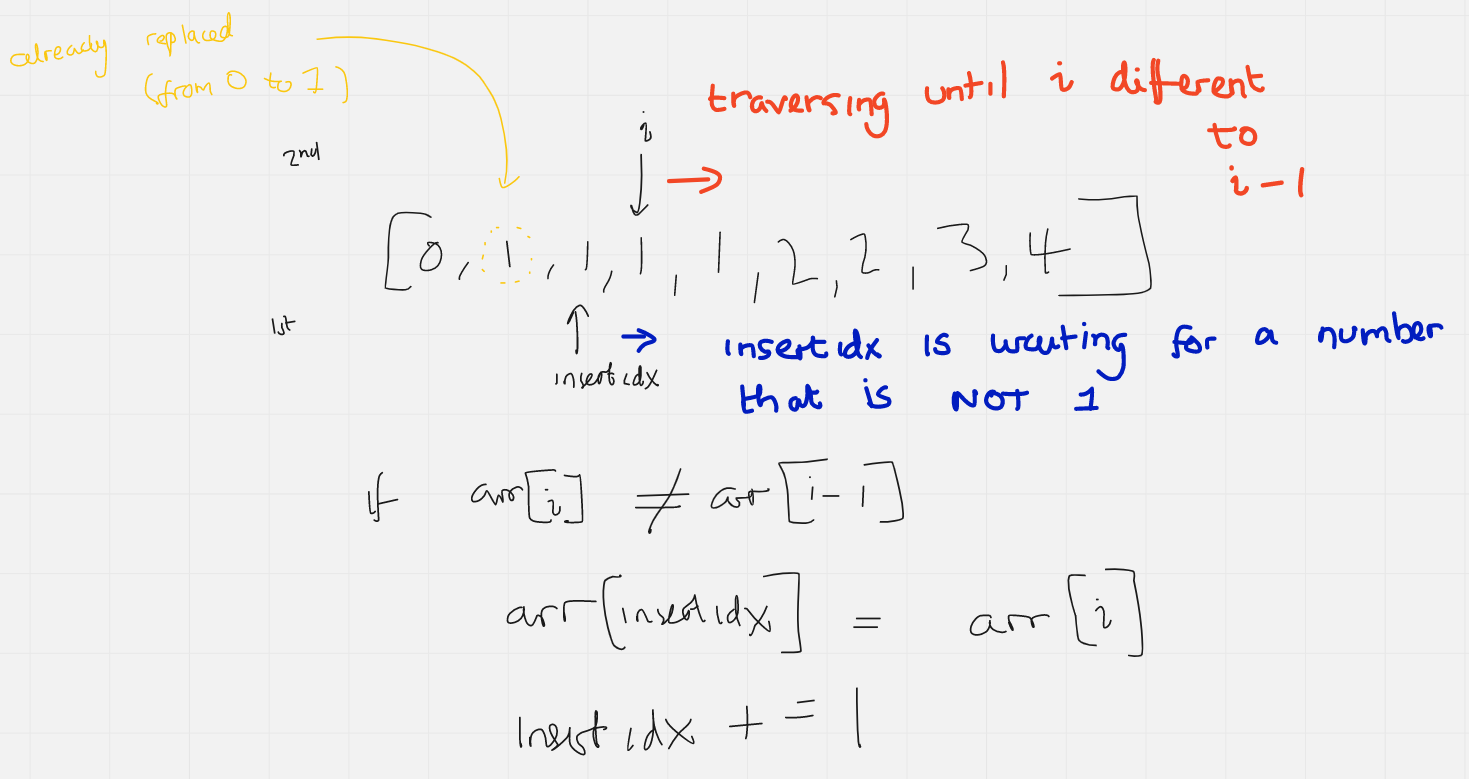 already replaced
(from 0 to 1)
traversing until i different
to
i - 1
i
2nd
[0, 1, 1, 1, 1, 2, 2, 3, 4]
1st
insert idx
insert idx is waiting for a number
that is NOT 1
If arr[i] ≠ arr[i-1]
arr[insert idx] = arr[i]
Insert idx += 1